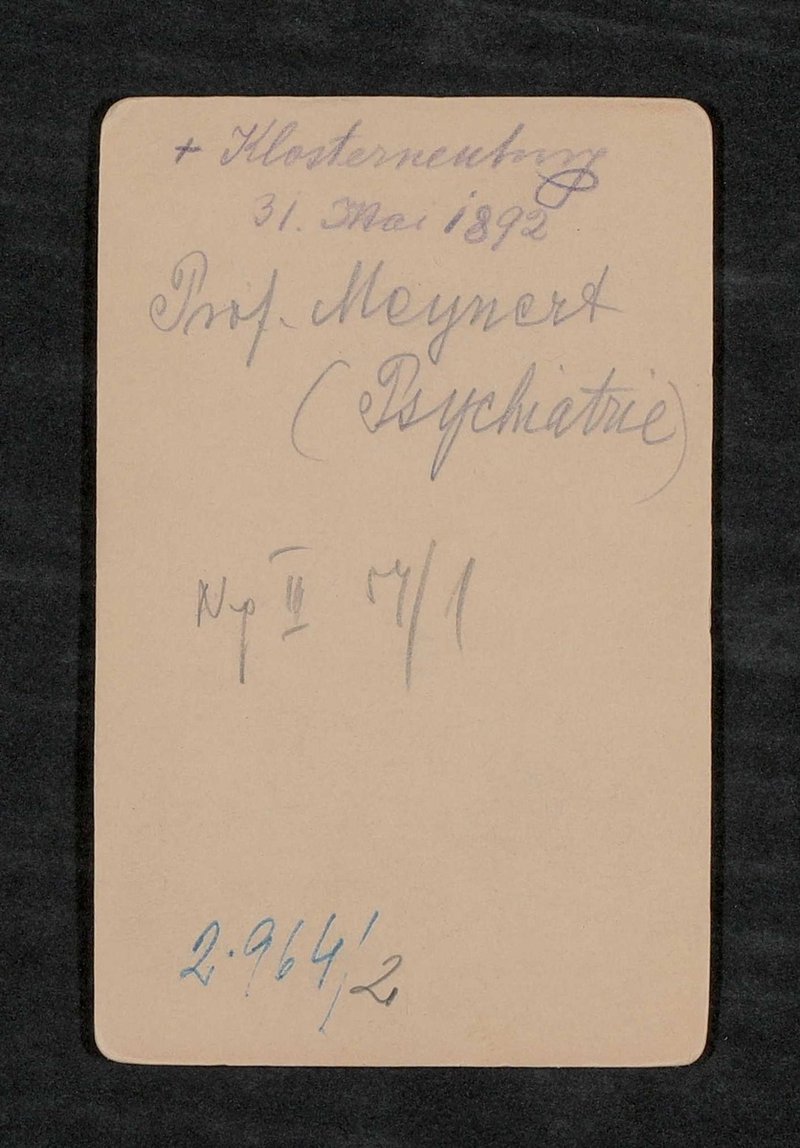 + Klosterneuburg
31. Mai 1892
Prof. Meynert
(Psychiatrie)
II /1
2.964/2